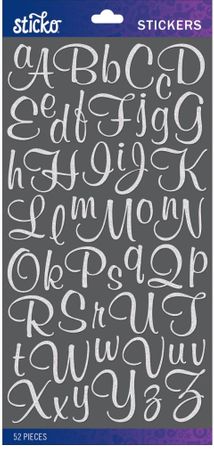 sticko
STICKERS
aAbBcCD
EedfFijgG
hHIiJjK
LlmMoNn
OkPsaQp
RSrUTq
tWwuvV
XxyYzZ
52 PIECES